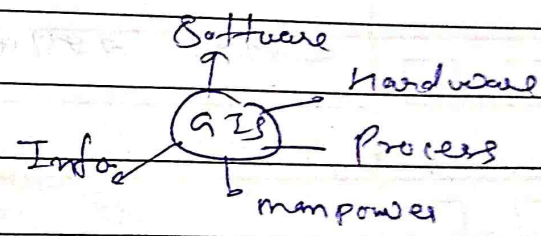 Software
Hardware
GIS
Process
Info
manpower